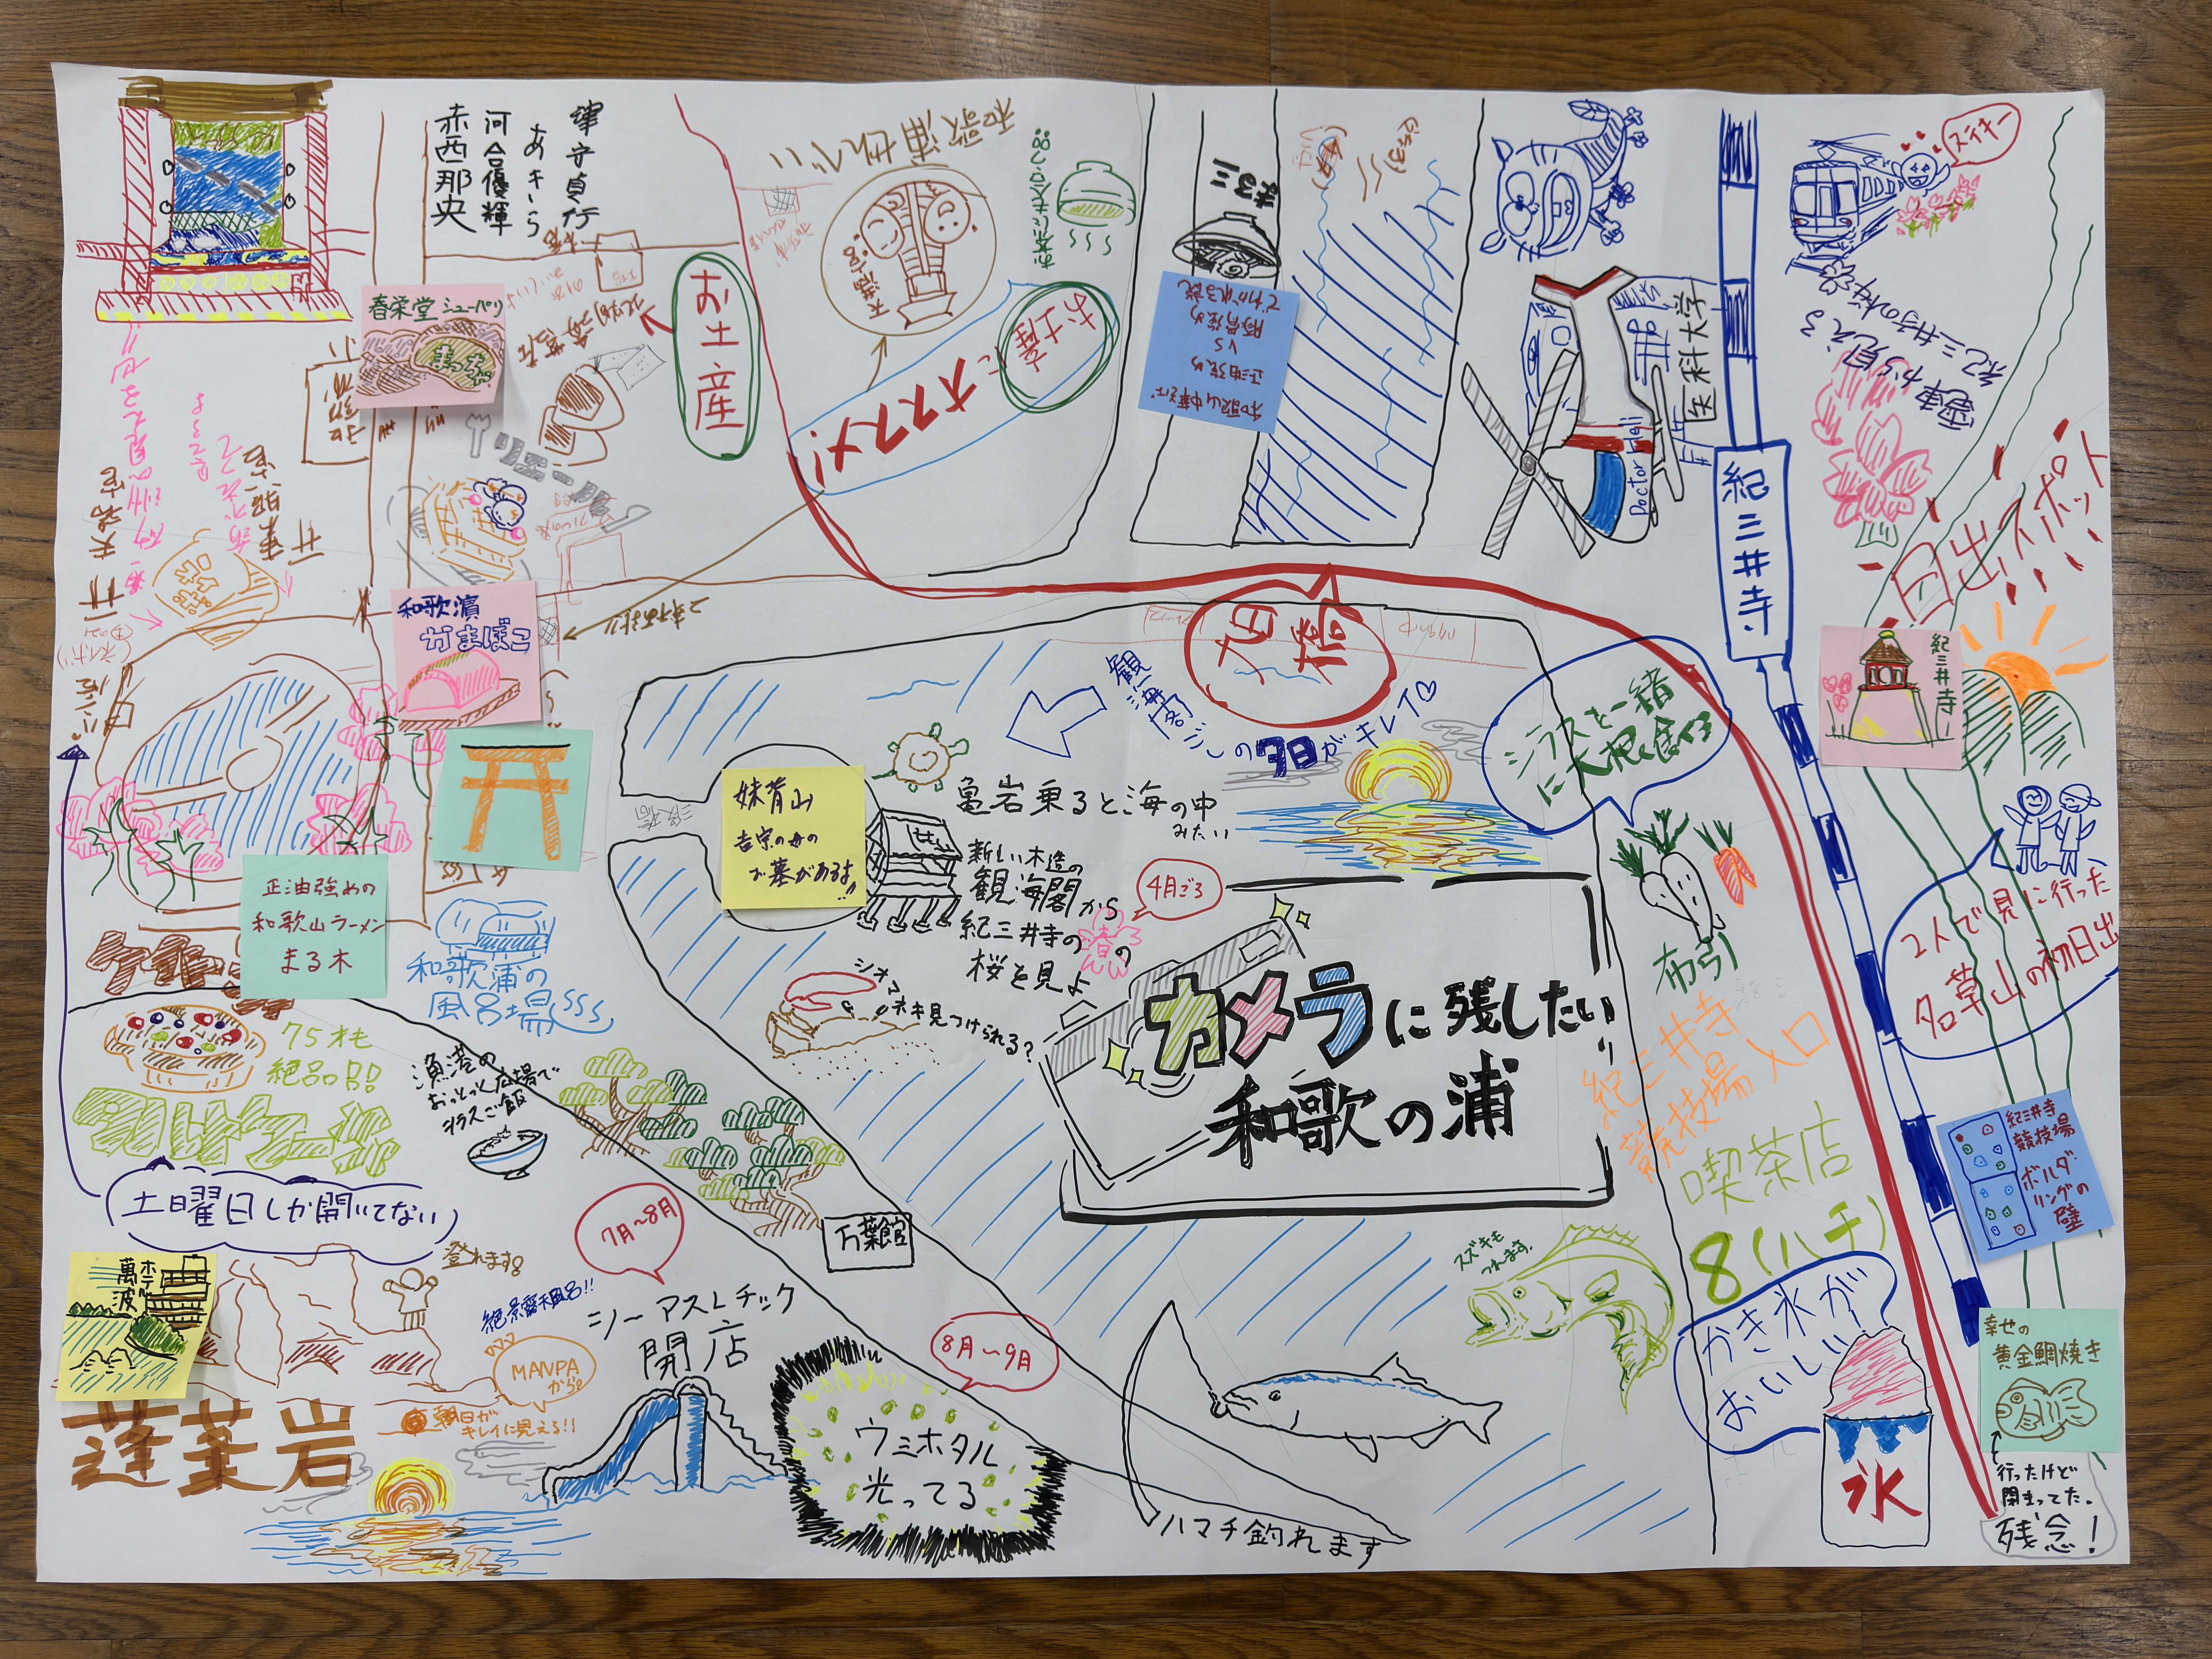 津守貞行
あきら
河合優輝
赤西那央
春栄堂 シューパリ
お土産
和歌浦せんべい
天満宮
お土産に
オススメ!
和歌山中華そば
正油強め
VS
豚骨強め
でわかれる説
Doctor Heli
医科大学
紀三井寺
ステキー
電車から見える
紀三井寺の桜
日出スポット
紀三井寺
天満宮
東照宮
和歌濱
かまぼこ
パン屋
旭橋
観海閣
ここの夕日がキレイ♡
シラスと一緒
に大根も食べる
布引
妹背山
吉宗の母の
お墓があるよ!!
亀岩乗ると海の中
みたい
新しい木造の
観海閣から
紀三井寺の春の
桜を見よ
4月ごろ
三段橋
シオマネキ見つけられる?
カメラに残したい
和歌の浦
正油強めの
和歌山ラーメン
まる木
和歌浦の
風呂場
ピザも
絶品!!
漁港の
おっとっと広場で
シラスご飯
土日曜日しか開いてない
2人で見に行った
名草山の初日出
紀三井寺
競技場入口
喫茶店
8(ハチ)
紀三井寺
競技場
ボルダ
リングの
壁
かき氷が
おいしい
氷
幸せの
黄金鯛焼き
行ったけど
閉まってた。
残念!
スズキも
つれます。
ハマチ釣れます
万葉館
7月〜8月
シーアスレチック
開店
8月〜9月
ウミホタル
光ってる
登れます!
絶景露天風呂!!
MANPA
から
朝日が
キレイに見える!!
萬波
ホテル
蓬莱岩